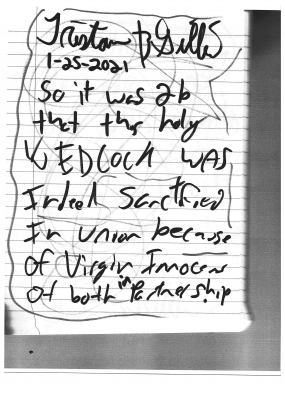 Tristan B Gilles
1-25-2021
So it was 2-b
that this holy
WEDLOCK WAS
Indeed Sanctified
In union because
Of Virgin Innocens
Of both in Partnership